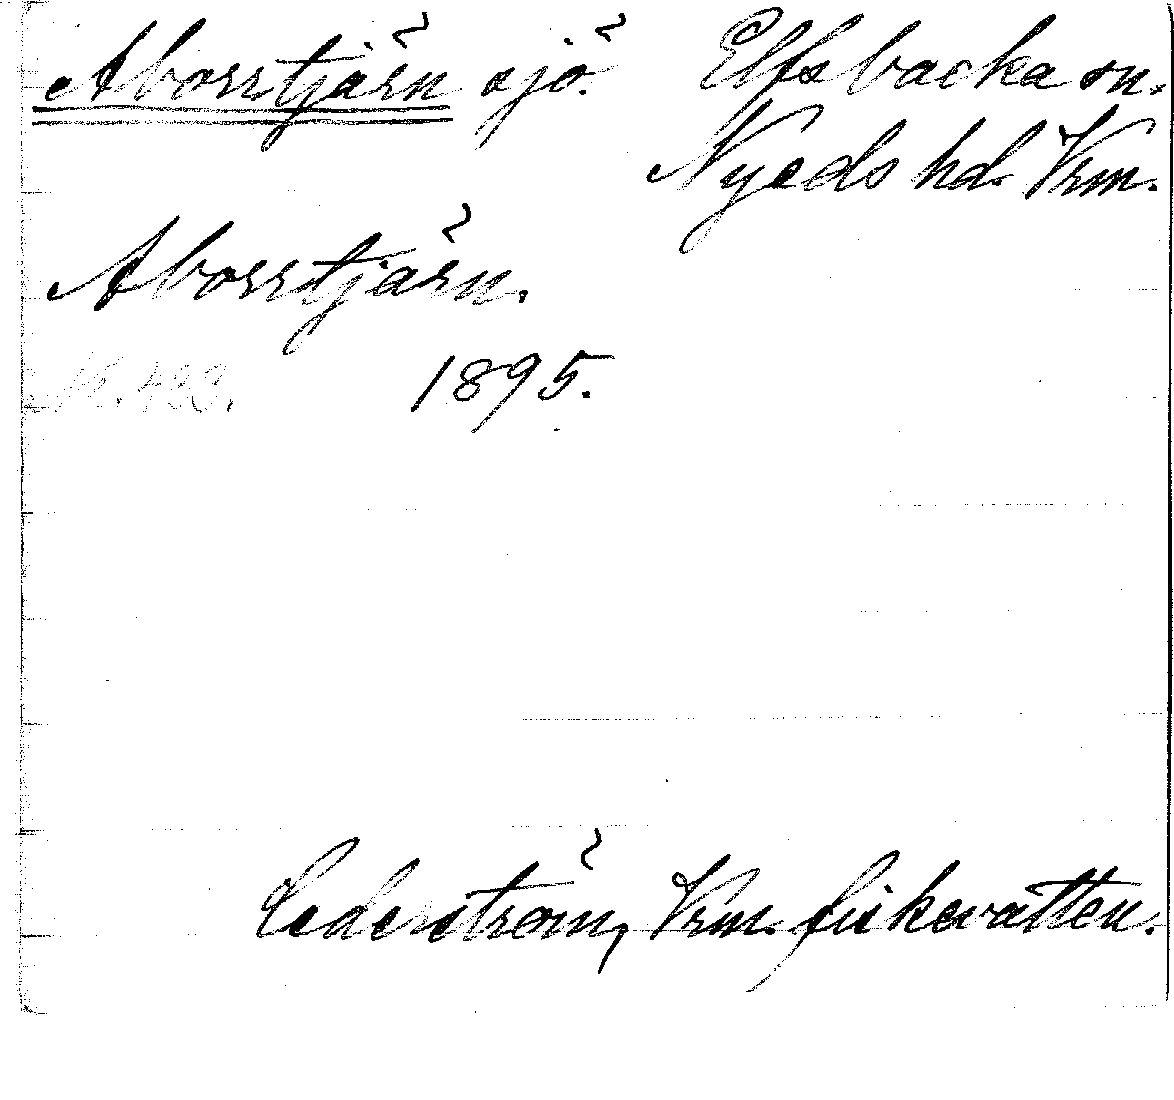 Abborrtjärn sjö. Elfsbacka sn.
Nyeds hd. Vrm.
Aborrtjärn.
1895.
Cederström, Vrm. fiskevatten.